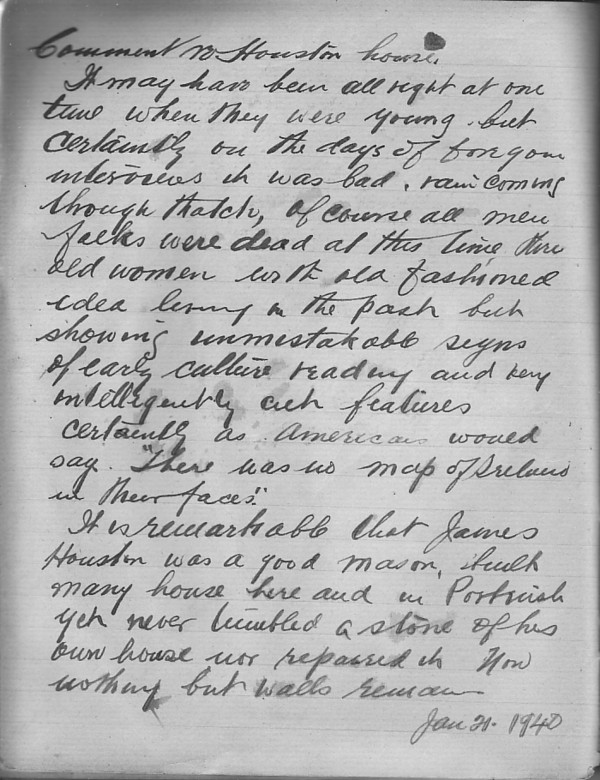 Comment re Houston house.
It may have been all right at one
time when they were young. but
certainly on the days of foregoin
interviews it was bad, rain coming
through thatch, of course all men
folks were dead at this time three
old women with old fashioned
idea living in the past but
showing unmistakable signs
of early culture reading and very
intelligently cut features
certainly as Americans would
say. "There was no map of Ireland
in their faces."
It is remarkable that James
Houston was a good mason, built
many house here and in Portrush
yet never tumbled a stone of his
own house nor repaired it Now
nothing but walls remain
Jan 21. 1940